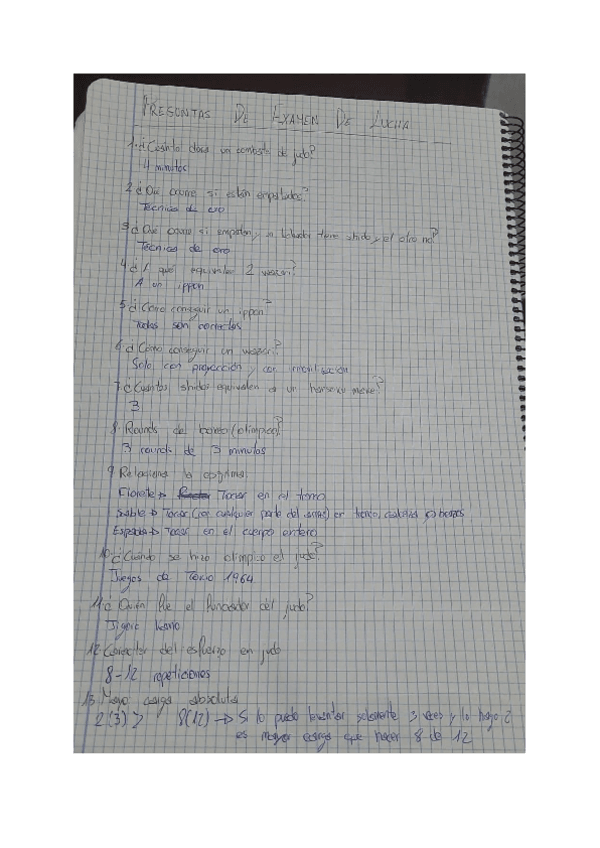 PREGUNTAS DE EXAMEN DE LUCHA
1. ¿Cuánto dura un combate de judo?
4 minutos
2. ¿Qué ocurre si están empatados?
Técnica de oro
3. ¿Qué ocurre si empatan, y un luchador tiene shido y el otro no?
Técnica de oro
4. ¿A qué equivale 2 wazari?
A un ippon
5. ¿Cómo conseguir un ippon?
Todas son correctas
6. ¿Cómo conseguir un wazari?
Solo con proyección y con inmovilización
7. ¿Cuántos shidos equivalen a un hansoku make?
3
8. Rounds de boxeo (olímpico)?
3 rounds de 3 minutos
9. Relaciona la esgrima:
Florete → Tocar en el tronco
Sable → Tocar (con cualquier parte del arma) en tronco, cabeza y brazos
Espada → Tocar en el cuerpo entero
10. ¿Cuándo se hizo olímpico el judo?
Juegos de Tokio 1964
11. ¿Quién fue el fundador del judo?
Jigoro Kano
12. Carácter del esfuerzo en judo
8-12 repeticiones
13. Mayor carga absoluta
2(3) > 8(12) → Si lo puedo levantar solamente 3 veces y lo hago 2
es mayor carga que hacer 8 de 12